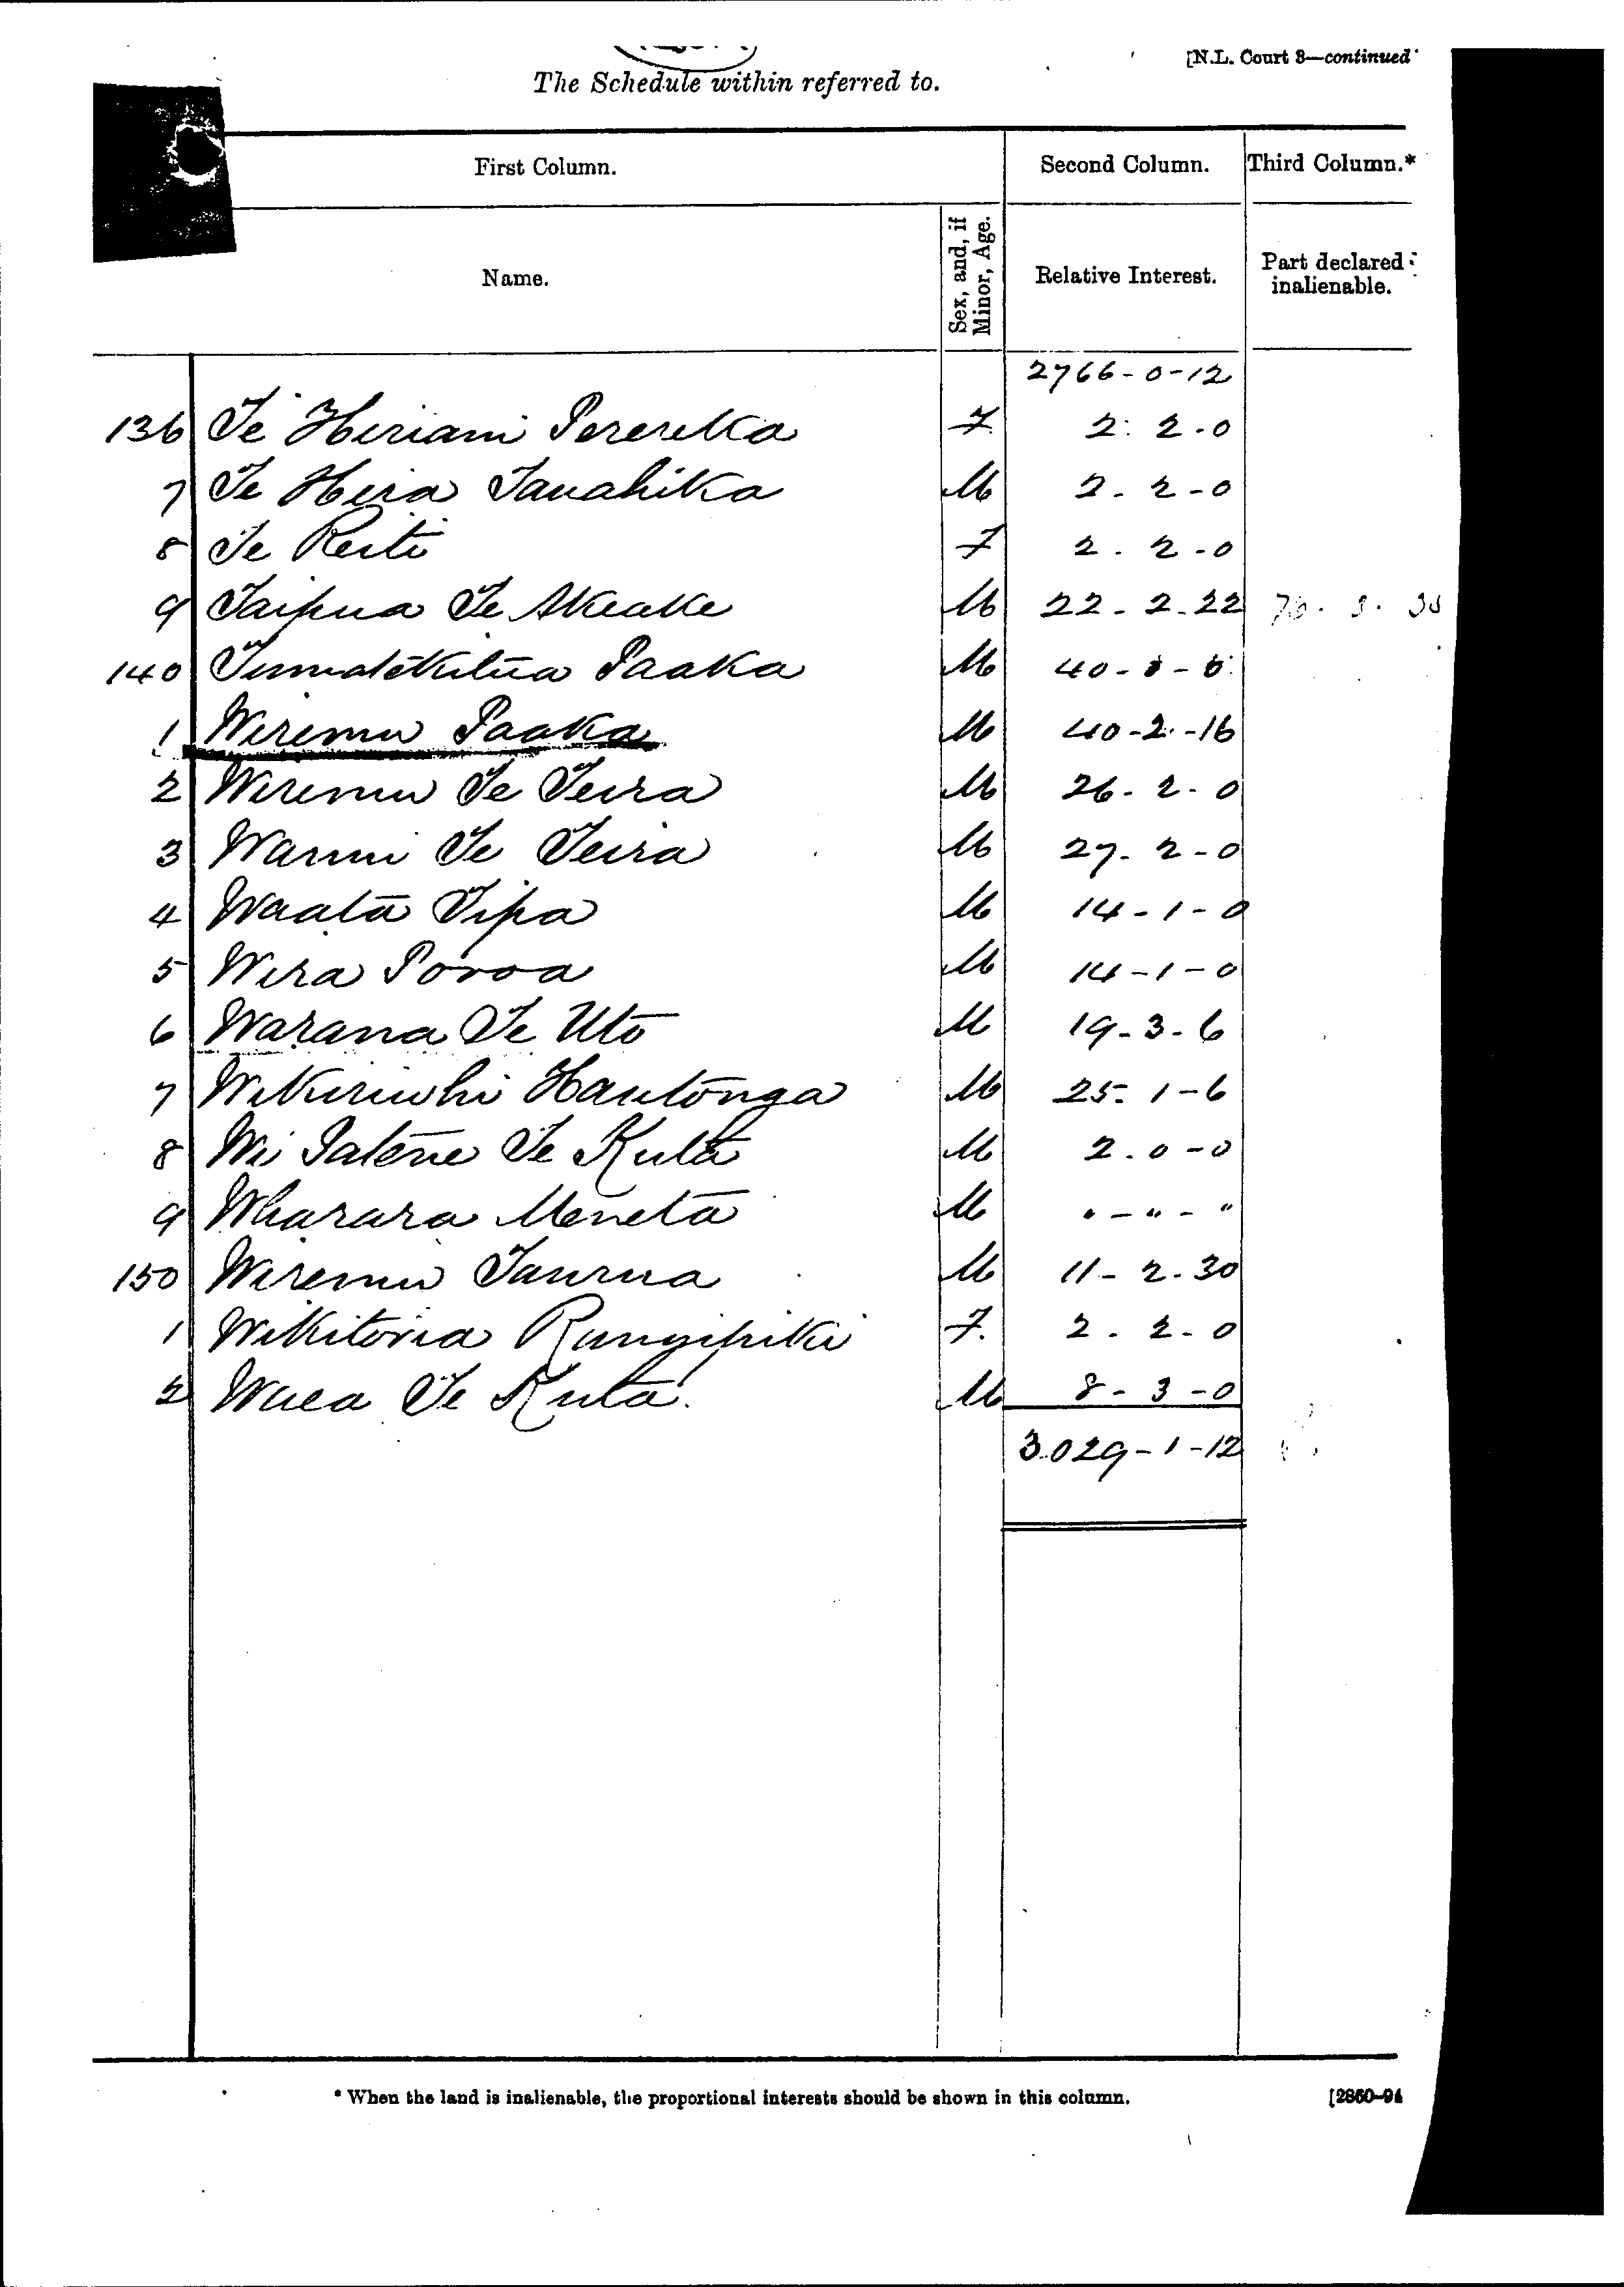 [N.L. Court 8—continued
The Schedule within referred to.
First Column. Second Column. Third Column.*
Name. Sex, and, if Minor, Age. Relative Interest. Part declared inalienable.
2766-0-12
136 Te Hiriami Perereka F. 2. 2.0
7 Te Hira Tauahika M 2-2-0
8 Te Reiti F 2.2-0
9 Taipua Te Akeake M 22-2-22
140 Paaka M 40-0-0
1 Wiremu Paaka M 40-2-16
2 Wiremu Te Teira M 26-2-0
3 Te Teira M 27-2-0
4 Waata Tipa M 14-1-0
5 Wira Poroa M 14-1-0
6 Warana Te Uto M 19-3-6
7 Wikiriwhi Hautonga M 25-1-6
8 Wi Patene Te Kuta M 2.0-0
9 Wharara Meneta M " - " - "
150 Wiremu Taurua M 11-2-30
1 Wikitoria Rangipiki F. 2.2-0
2 Waea Te Kuta. M 8-3-0
3029-1-12
* When the land is inalienable, the proportional interests should be shown in this column. [2860-94